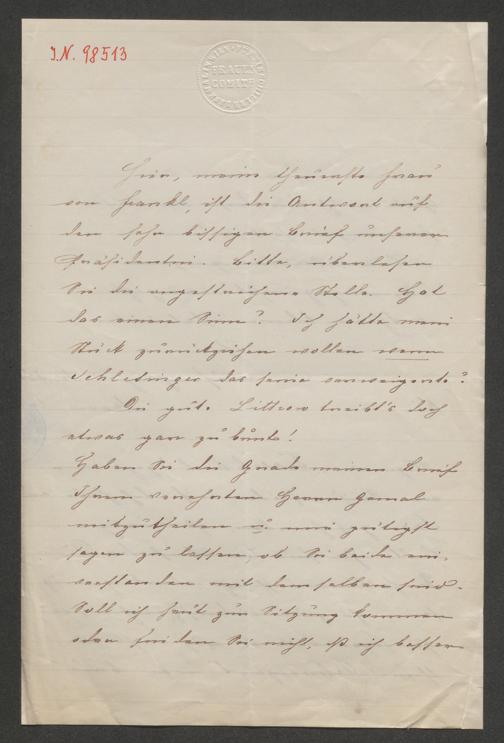 J.N. 98513
FRAUEN
COMITÉ
Hier, meine theuerste Frau
von Frankl, ist die Antwort auf
den sehr bissigen Brief unserer
Präsidentin. Bitte, überlesen
Sie die angestrichene Stelle. Hat
das einen Sinn? Ich hätte mein
Stück zurückziehen wollen wenn
Schlesinger das seine verweigerte?
Die gute Littrow treibt's doch
etwas gar zu bunt!
Haben Sie die Gnade meinen Brief
Ihrem verehrten Herrn Gemal
mitzutheilen u. mir gütigst
sagen zu lassen ob Sie beide ein-
verstanden mit demselben sind.
Soll ich heut zur Sitzung kommen
oder finden Sie nicht, ich besser